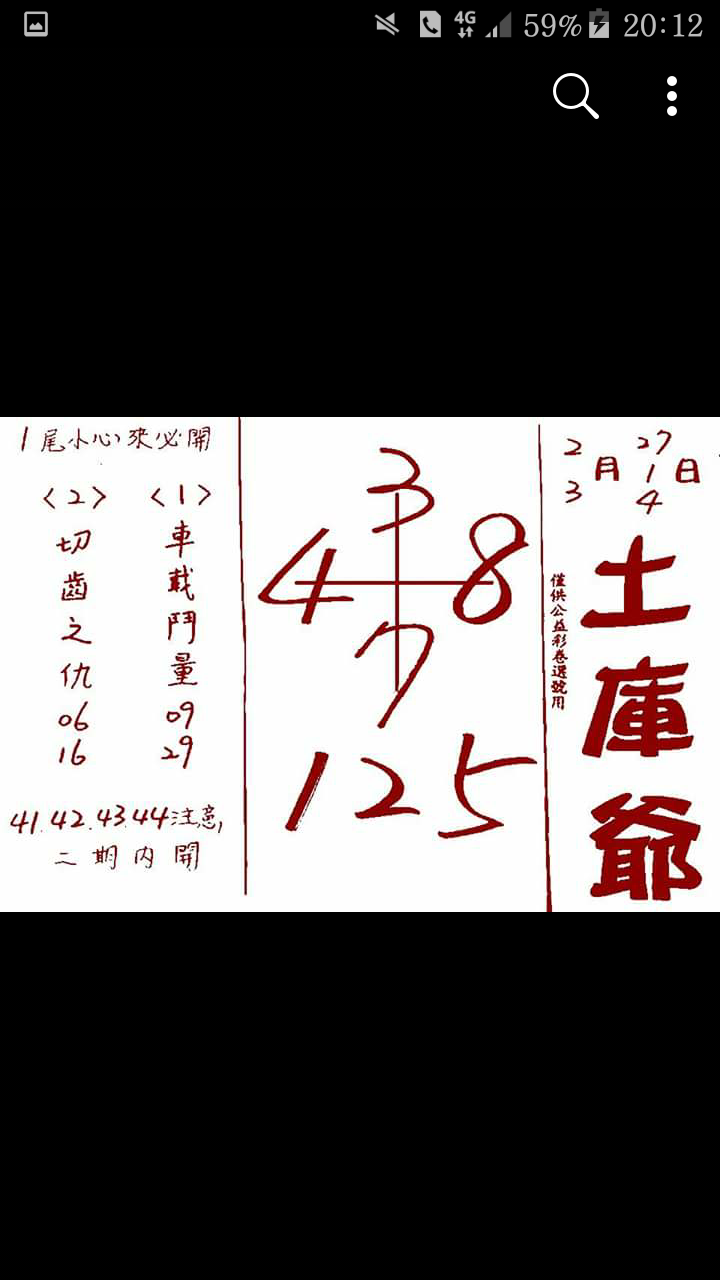 4G 59% 20:12
2 27
月 1 日
3 4
土庫爺
僅供公益彩卷選號用
3
4 8
7
125
1尾小心來必開
〈1〉
車載鬥量
09
29
〈2〉
切齒之仇
06
16
41.42.43.44注意,
二期內開